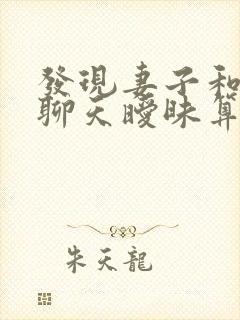 發現妻子和
聊天曖昧算
朱天龍